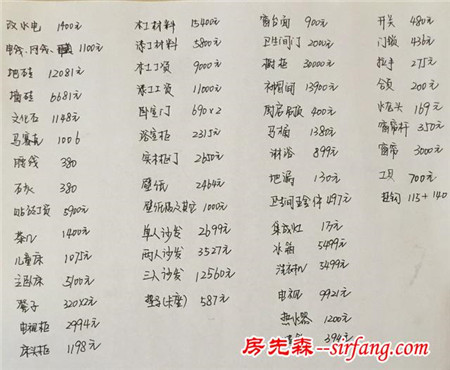 改水电 1900元
电线、网线、 1100元
地砖 12081元
墙砖 6681元
文化石 1148元
马赛克 1006
腰线 380
石灰 380
贴砖工资 5900元
茶几 1400元
儿童床 1075元
主卧床 5100元
凳子 320×2元
电视柜 2994元
床头柜 1198元
木工材料 15400元
漆工材料 5800元
木工工资 9000元
漆工工资 11000元
卧室门 690×2
浴室柜 2315元
实木柜门 2650元
壁纸 2464元
壁纸 1000元
单人沙发 2699元
两人沙发 3527元
三人沙发 12560元
垫子(卡座) 587元
窗台面 900元
卫生间门 2000元
橱柜 30000元
衣帽间 13900元
厨房吊顶 400元
马桶 1380元
淋浴 899元
地漏 130元
卫生间五金件 497元
集成灶 1万元
冰箱 5499元
洗衣机 3499元
电视 9921元
热水器 1200元
394元
开关 480元
门锁 436元
拉手 275元
合页 200元
水龙头 169元
窗帘杆 350元
窗帘 3000元
工具 700元
挂钩 115+140
房先森--sirfang.com